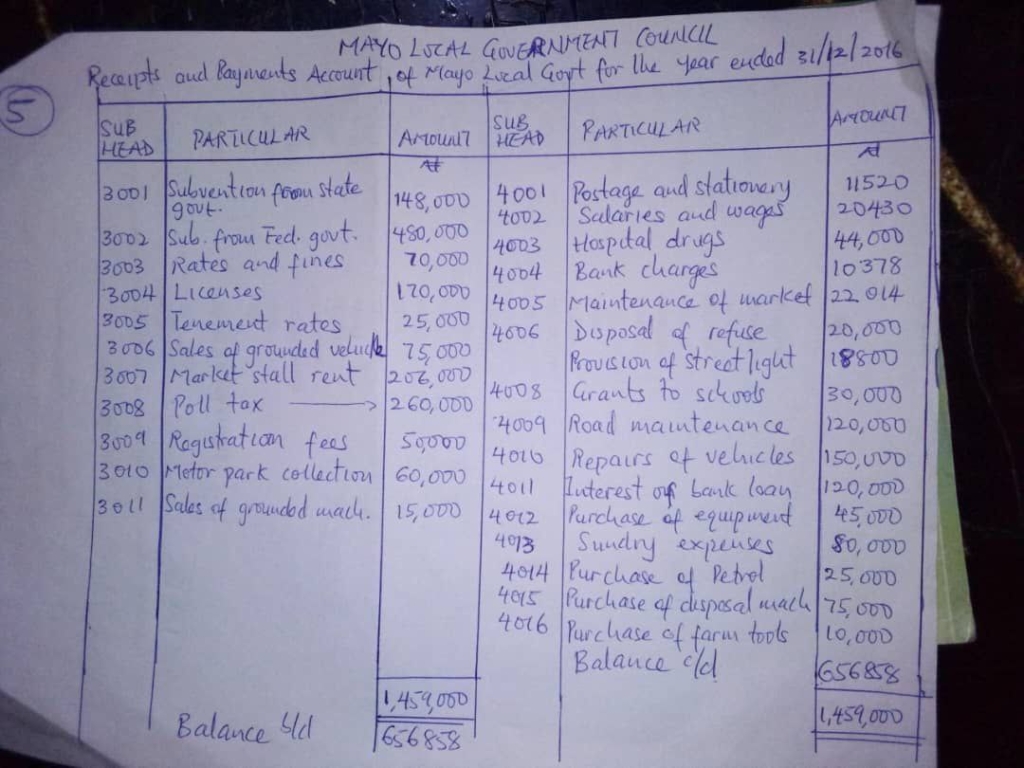 5
MAYO LOCAL GOVERNMENT COUNCIL
Receipts and Payments Account, of Mayo Local Govt for the year ended 31/12/2016
SUB HEAD PARTICULAR AMOUNT
₦
3001 Subvention from state
govt. 148,000
3002 Sub. from Fed. govt. 480,000
3003 Rates and fines 70,000
3004 Licenses 120,000
3005 Tenement rates 25,000
3006 Sales of grounded vehicle 75,000
3007 Market stall rent 206,000
3008 Poll tax → 260,000
3009 Registration fees 50,000
3010 Motor park collection 60,000
3011 Sales of grounded mach. 15,000
1,459,000
Balance b/d 656858
SUB HEAD PARTICULAR AMOUNT
₦
4001 Postage and stationery 11520
4002 Salaries and wages 20430
4003 Hospital drugs 44,000
4004 Bank charges 10378
4005 Maintenance of market 22014
4006 Disposal of refuse 20,000
Provision of street light 18800
4008 Grants to schools 30,000
4009 Road maintenance 120,000
4010 Repairs of vehicles 150,000
4011 Interest of bank loan 120,000
4012 Purchase of equipment 45,000
4013 Sundry expenses 80,000
4014 Purchase of Petrol 25,000
4015 Purchase of disposal mach 75,000
4016 Purchase of farm tools 10,000
Balance c/d 656858
1,459,000